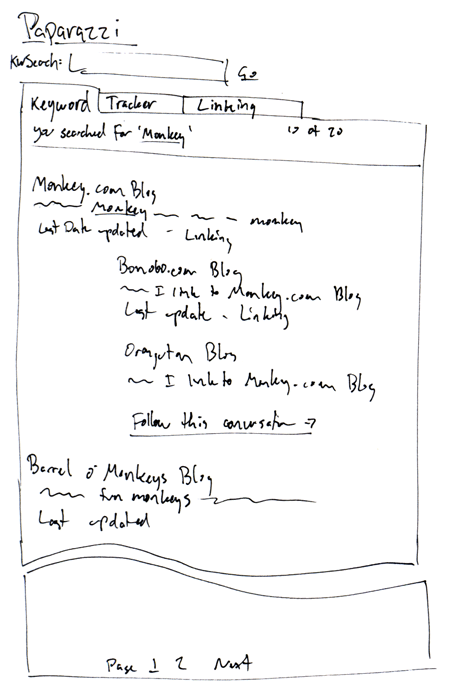 Paparazzi
KW Search:
Go
Keyword Tracker Linking
you searched for 'Monkey' 10 of 20
Monkey.com Blog
monkey - monkey
Last Date updated - Linking
Bonobo.com Blog
I link to Monkey.com Blog
Last update - Linking
Orangutan Blog
I link to Monkey.com Blog
Follow this conversation →
Barrel o' Monkeys Blog
fun monkeys
Last updated
Page 1 2 Next